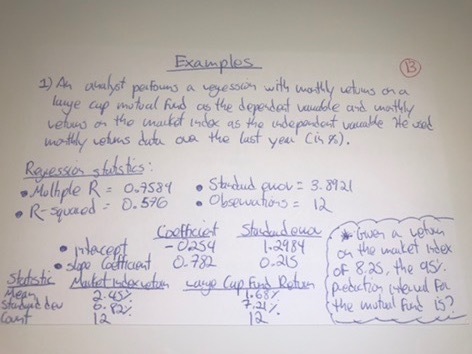 Examples
B
1) An analyst performs a regression with monthly returns on a
large cap mutual fund as the dependent variable and monthly
returns on the market index as the independent variable. He used
monthly returns data over the last year (in %).
Regression statistics:
• Multiple R = 0.7584 • Standard error = 3.8921
• R-squared = 0.576 • Observations = 12
Coefficient Standard error
• intercept -0.254 1.2984
• slope coefficient 0.782 0.215
Statistic Market index return Large Cap Fund Return
Mean 2.45% 1.68%
Standard dev 7.21%
Count 12 12
* Given a return
on the market index
of 8.25, the 95%
prediction interval for
the mutual fund is?